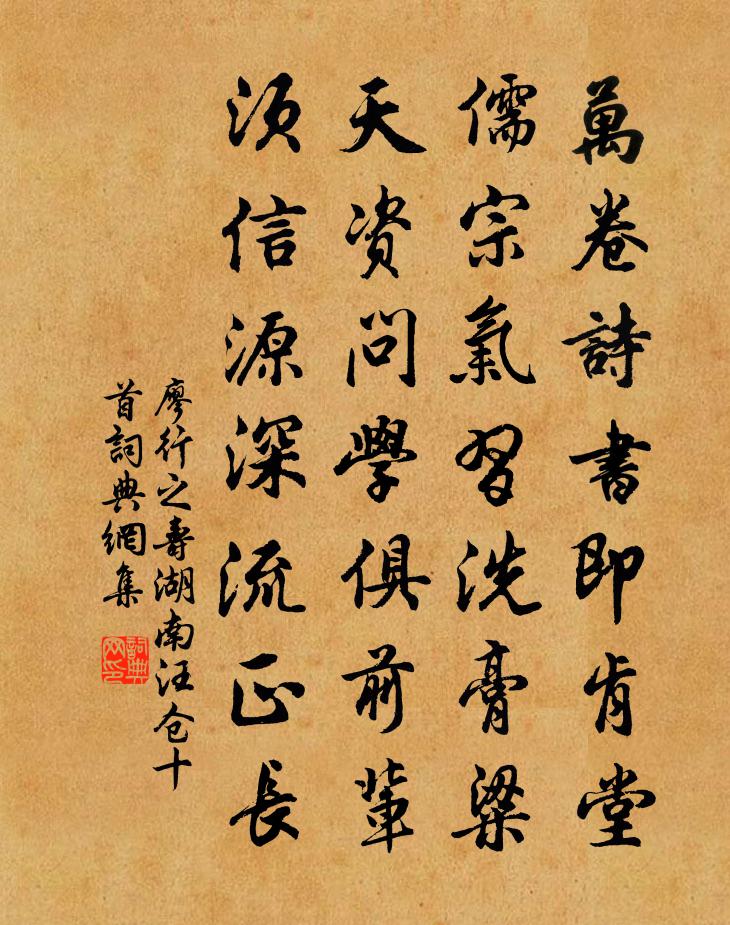 萬卷詩書即肯堂
儒宗氣習洗膏粱
天資問學俱前輩
須信源深流正長
廖行之壽湖南汪仓十
首詞典網集
詞典网印